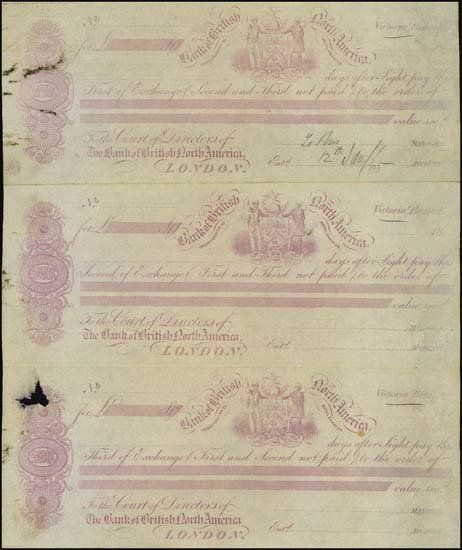 No
for £
Bank of British North America.
Victoria
days after Sight pay this
First of Exchange (Second and Third not paid) to the order of
value rec.d
To the Court of Directors of
The Bank of British North America,
LONDON.
Ent.d
MANAGER
No
for £
Bank of British North America.
Victoria
18
days after Sight pay this
Second of Exchange (First and Third not paid) to the order of
value rec.d
To the Court of Directors of
The Bank of British North America,
LONDON.
Ent.d
MANAGER
No
for £
Bank of British North America.
Victoria
days after Sight pay this
Third of Exchange (First and Second not paid) to the order of
value rec.d
To the Court of Directors of
The Bank of British North America,
LONDON.
Ent.d
MANAGER